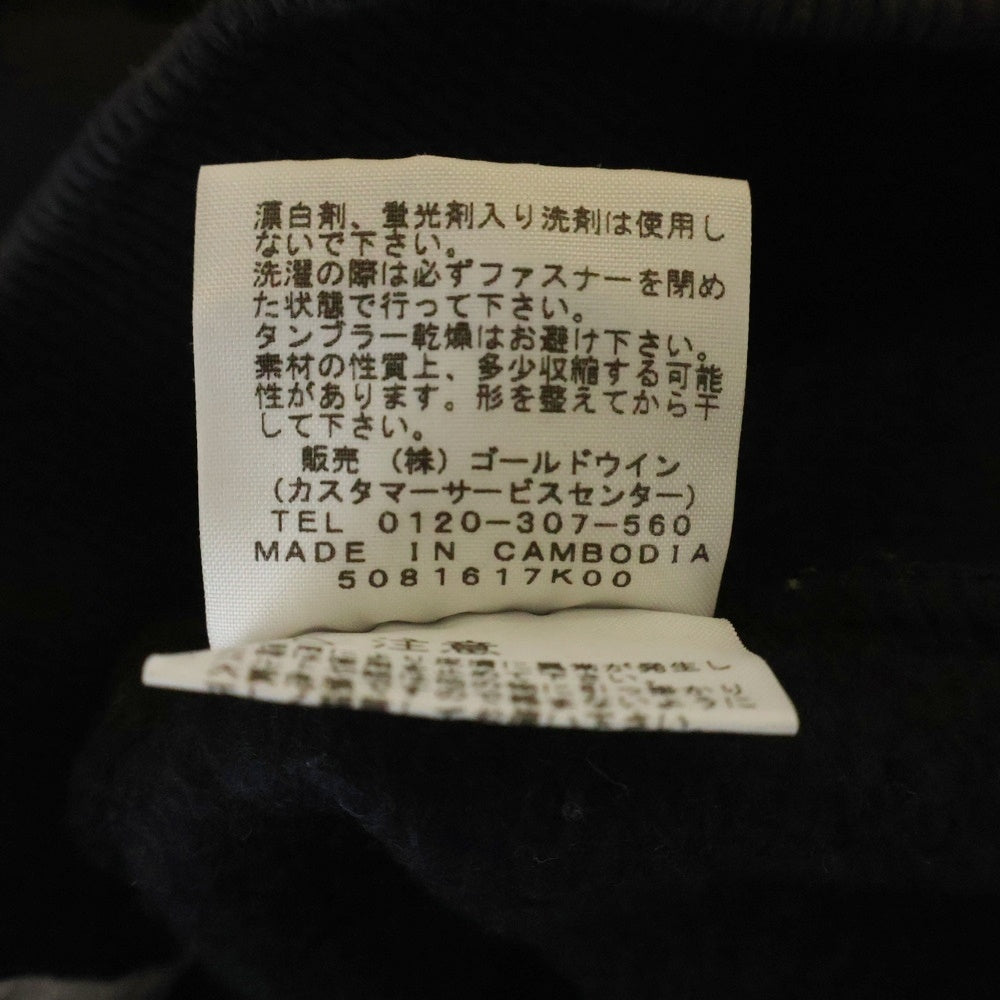 漂白剤、蛍光剤入り洗剤は使用し
ないで下さい。
洗濯の際は必ずファスナーを閉め
た状態で行って下さい。
タンブラー乾燥はお避け下さい。
素材の性質上、多少収縮する可能
性があります。形を整えてから干
して下さい。
販売 (株)ゴールドウイン
(カスタマーサービスセンター)
TEL 0120-307-560
MADE IN CAMBODIA
5081617K00
注意
が発生し
下さい